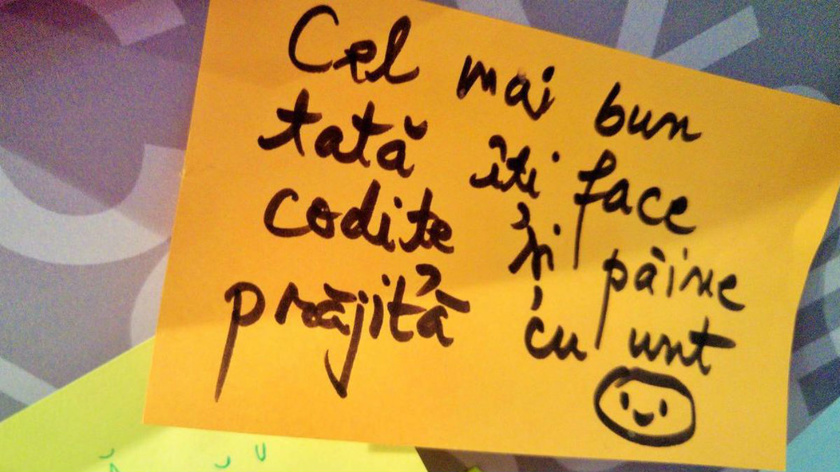 Cel mai bun
tată îți face
codițe și pâine
prăjită cu unt